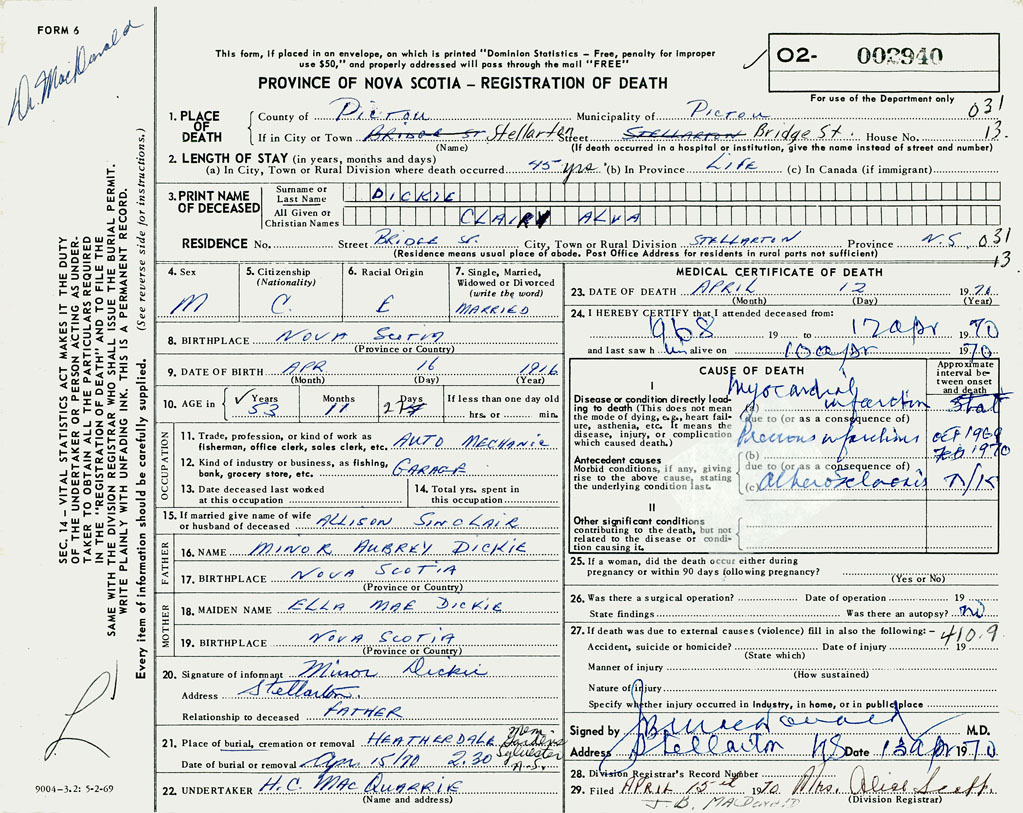 FORM 6
Dr. MacDonald
This form, if placed in an envelope, on which is printed "Dominion Statistics – Free, penalty for improper
use $50," and properly addressed will pass through the mail "FREE"
PROVINCE OF NOVA SCOTIA – REGISTRATION OF DEATH
02- 002940
For use of the Department only
1. PLACE OF DEATH
County of Pictou Municipality of Pictou 031
If in City or Town Bridge St Stellarton Street Stellarton Bridge St. House No. 13.
(Name) (If death occurred in a hospital or institution, give the name instead of street and number)
2. LENGTH OF STAY (in years, months and days)
(a) In City, Town or Rural Division where death occurred 45 yrs (b) In Province LIFE (c) In Canada (if immigrant)
3. PRINT NAME OF DECEASED
Surname or Last Name DICKIE
All Given or Christian Names CLAIR ALVA
RESIDENCE No. Street BRIDGE ST. City, Town or Rural Division STELLARTON Province N.S 031
(Residence means usual place of abode. Post Office Address for residents in rural parts not sufficient) 13
4. Sex M
5. Citizenship (Nationality) C.
6. Racial Origin E
7. Single, Married, Widowed or Divorced (write the word) MARRIED
8. BIRTHPLACE NOVA SCOTIA
(Province or Country)
9. DATE OF BIRTH APR 16 1916
(Month) (Day) (Year)
10. AGE in Years 53 Months 11 Days If less than one day old hrs. or min.
OCCUPATION
11. Trade, profession, or kind of work as fisherman, office clerk, sales clerk, etc. AUTO MECHANIC
12. Kind of industry or business, as fishing, bank, grocery store, etc. GARAGE
13. Date deceased last worked at this occupation
14. Total yrs. spent in this occupation
15. If married give name of wife or husband of deceased ALLISON SINCLAIR
FATHER
16. NAME MINOR AUBREY DICKIE
17. BIRTHPLACE NOVA SCOTIA
(Province or Country)
MOTHER
18. MAIDEN NAME ELLA MAE DICKIE
19. BIRTHPLACE NOVA SCOTIA
(Province or Country)
20. Signature of informant Minor Dickie
Address Stellarton
Relationship to deceased FATHER
21. Place of burial, cremation or removal HEATHERDALE Mem Gardens Sylvester N.S.
Date of burial or removal Apr 15/70 2.30
22. UNDERTAKER H.C. MAC QUARRIE
(Name and address)
MEDICAL CERTIFICATE OF DEATH
23. DATE OF DEATH APRIL 12 1970
(Month) (Day) (Year)
24. I HEREBY CERTIFY that I attended deceased from:
1968 19 to 12 Apr 1970
and last saw h im alive on 10 apr 1970
CAUSE OF DEATH
Approximate interval between onset and death
I
Disease or condition directly leading to death (This does not mean the mode of dying, e.g., heart failure, asthenia, etc. It means the disease, injury, or complication which caused death.)
(a) Myocardial infarction Stat
due to (or as a consequence of)
Antecedent causes
Morbid conditions, if any, giving rise to the above cause, stating the underlying condition last.
(b) Previous infarctions Oct 1969 Feb 1970
due to (or as a consequence of)
(c) Atherosclerosis
II
Other significant conditions
contributing to the death, but not related to the disease or condition causing it.
25. If a woman, did the death occur either during pregnancy or within 90 days following pregnancy?
(Yes or No)
26. Was there a surgical operation? Date of operation 19
State findings Was there an autopsy? no
27. If death was due to external causes (violence) fill in also the following: – 410.9
Accident, suicide or homicide? Date of injury 19
(State which)
Manner of injury
(How sustained)
Nature of injury
Specify whether injury occurred in industry, in home, or in public place
Signed by M.D.
Address Stellarton NS Date 13 Apr 1970
28. Division Registrar's Record Number
29. Filed APRIL 15th 1970 Mrs. Alice
(Division Registrar)
SEC. 14 – VITAL STATISTICS ACT MAKES IT THE DUTY
OF THE UNDERTAKER OR PERSON ACTING AS UNDERTAKER TO OBTAIN ALL THE PARTICULARS REQUIRED
IN THE "REGISTRATION OF DEATH" AND TO FILE THE
SAME WITH THE DIVISION REGISTRAR WHO SHALL ISSUE THE BURIAL PERMIT.
WRITE PLAINLY WITH UNFADING INK. THIS IS A PERMANENT RECORD.
Every item of information should be carefully supplied. (See reverse side for instructions.)
9004-3.2: 5-2-69